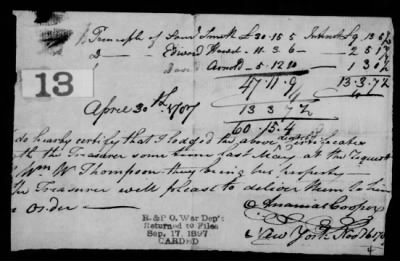 1 Principle of Saml Smith £30.15.5 Interest £9.13.6½
2 Edward Howel - 11.3.6 2.5.1½
Arnold - 5.12.10 1.3.6½
47.11.9 13.3.7½
13
April 30th 1787 13 3 7½
60.15.4
do hearby certify that I lodged the above Certificates
with the Treasurer some time Last May at the request
Wm W Thompson they being his property
the Treasurer will please to deliver them to him
order
Ananias Cooper
New York Nov
R. & P. O. War Dep't:
Returned to Files
Sep. 17, 1897
CARDED